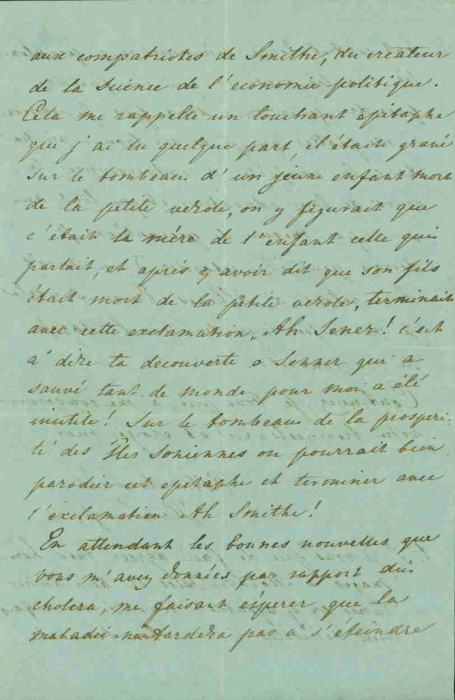 aux compatriotes de Smithe, du createur
de la science de l'economie politique.
Cela me rappelle un touchant epitaphe
que j'ai lu quelque part, il était gravé
sur le tombeau d'un jeune enfant mort
de la petite verole, on y figurait que
c'était la mére de l'enfant celle qui
parlait, et après y avoir dit que son fils
était mort de la petite verole, terminait
avec cette exclamation, Ah Jener! c'est
a' dire ta decouverte o Jenner qui a
sauvé tant de monde pour moi a été
inutile! Sur le tombeau de la prosperi-
té des Iles Ioniennes on pourrait bien
parodier cet epitaphe et terminer avec
l'exclamation Ah Smithe!
En attendant les bonnes nouvelles que
vous m'avez données par rapport du
cholera, me faisait ésperer que la
maladie ne tardera pas a' s'éteindre